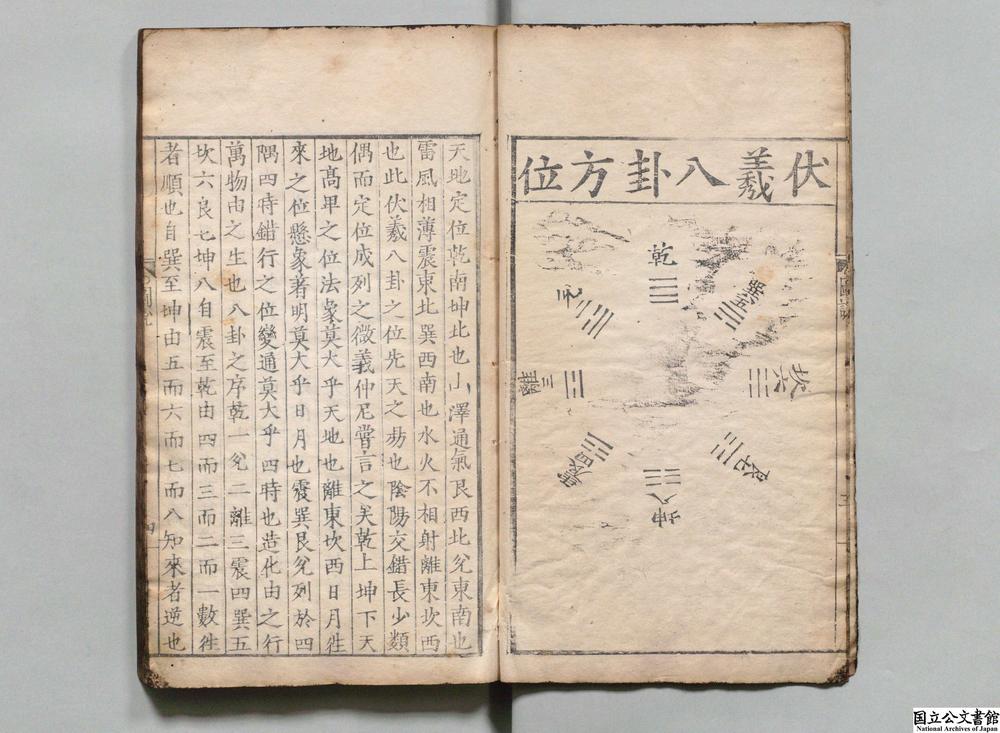 伏羲八卦方位
乾
巽五
坎六
艮七
坤八
震四
三
天地定位乾南坤北也山澤通氣艮西北兌東南也
雷風相薄震東北巽西南也水火不相射離東坎西
也此伏羲八卦之位先天之易也陰陽交錯長少類
偶而定位成列之微義仲尼嘗言之矣乾上坤下天
地高卑之位法象莫大乎天地也離東坎西日月徃
來之位懸象著明莫大乎日月也震巽艮兌列於四
隅四時錯行之位變通莫大乎四時也造化由之行
萬物由之生也八卦之序乾一兌二離三震四巽五
坎六艮七坤八自震至乾由四而三而二而一數徃
者順也自巽至坤由五而六而七而八知來者逆也
四
国立公文書館
National Archives of Japan